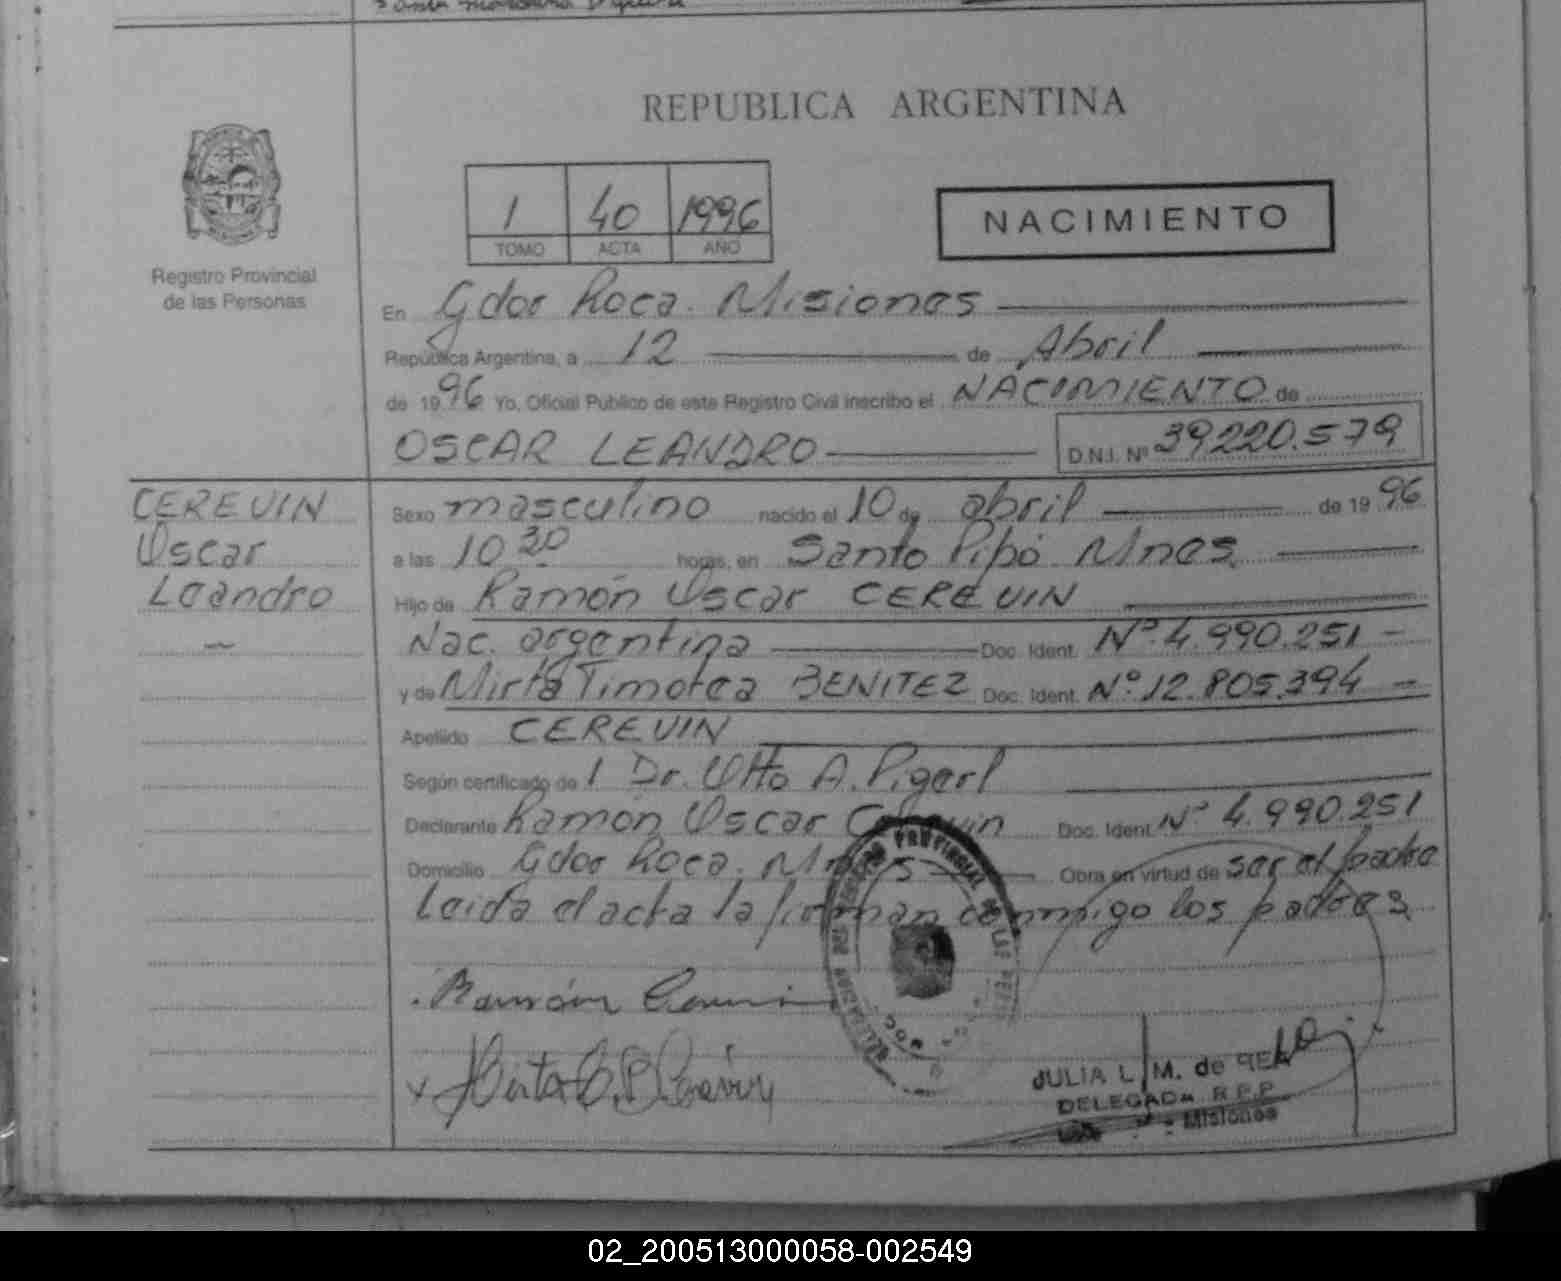 REPUBLICA ARGENTINA
1 40 1996
TOMO ACTA AÑO
NACIMIENTO
Registro Provincial
de las Personas
En Gdor Roca. Misiones
República Argentina, a 12 de Abril
de 1996 Yo, Oficial Publico de este Registro Civil inscribo el NACIMIENTO de
OSCAR LEANDRO D.N.I. Nº 39.220.579
CEREVIN
Oscar
Leandro
Sexo masculino nacido el 10 de abril de 1996
a las 10 30 horas, en Santo Pipó Mnes.
Hijo de Ramón Oscar CEREVIN
Nac. argentina Doc. Ident. Nº 4.990.251
y de Mirta Timotea BENITEZ Doc. Ident. Nº 12.805.394
Apellido CEREVIN
Según certificado de 1 Dr. Otto A.
Declarante Ramón Oscar Cerevin Doc. Ident. Nº 4.990.251
Domicilio Gdor Roca. Obra en virtud de ser el padre
Leida el acta la firman conmigo los padres
Ramón
JULIA L. M. de
DELEGADA R.P.P.
Misiones
02_200513000058-002549